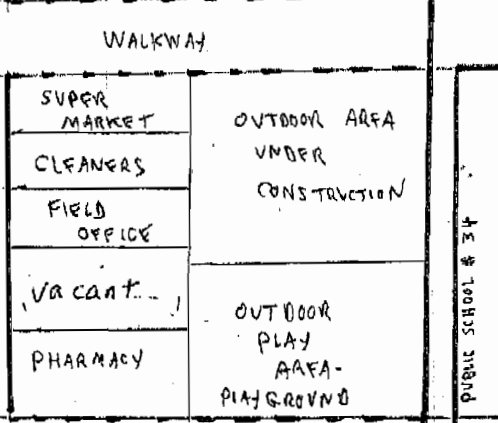 WALKWAY
SUPER
MARKET
CLEANERS
FIELD
OFFICE
vacant
PHARMACY
OUTDOOR AREA
UNDER
CONSTRUCTION
OUTDOOR
PLAY
AREA-
PLAYGROUND
PUBLIC SCHOOL # 34